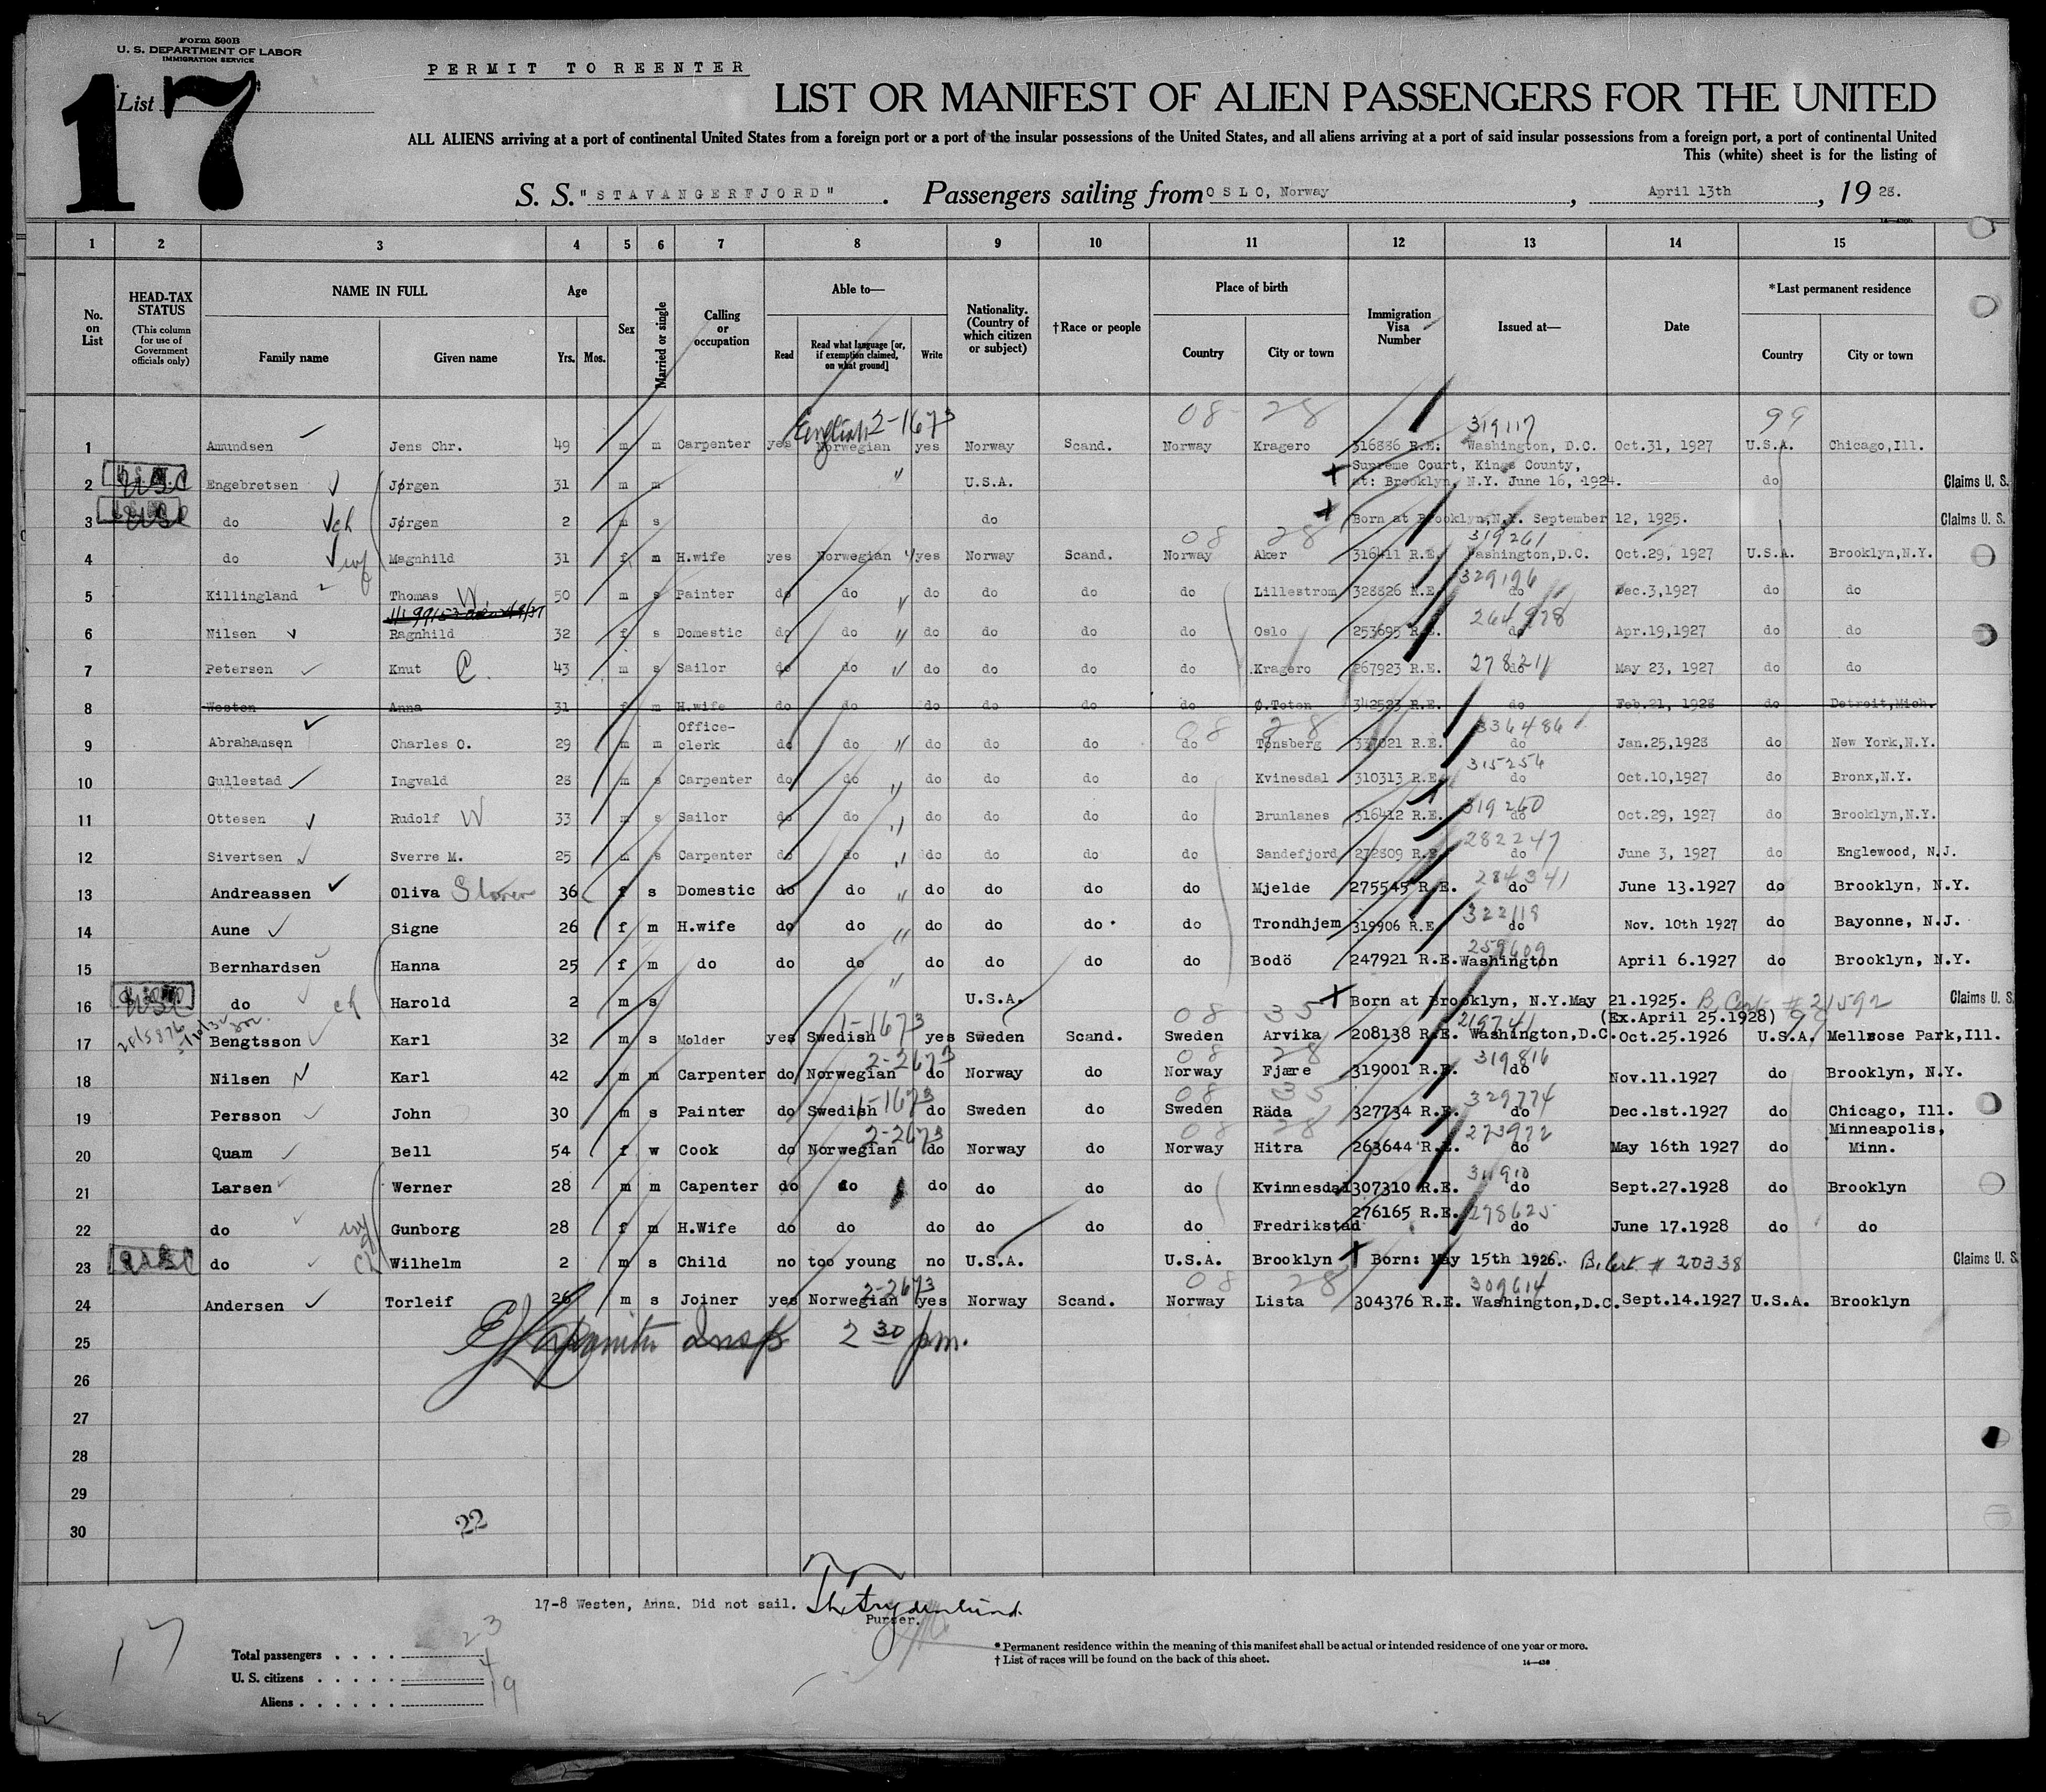 Form 500B
U. S. DEPARTMENT OF LABOR
IMMIGRATION SERVICE
PERMIT TO REENTER
List 17
LIST OR MANIFEST OF ALIEN PASSENGERS FOR THE UNITED
ALL ALIENS arriving at a port of continental United States from a foreign port or a port of the insular possessions of the United States, and all aliens arriving at a port of said insular possessions from a foreign port, a port of continental United
This (white) sheet is for the listing of
S. S. "STAVANGERFJORD". Passengers sailing from OSLO, Norway, April 13th, 1928.
1 2 3 4 5 6 7 8 9 10 11 12 13 14 15
No. on List HEAD-TAX STATUS (This column for use of Government officials only) NAME IN FULL Family name Given name Age Yrs. Mos. Sex Married or single Calling or occupation Able to— Read Read what language [or, if exemption claimed, on what ground] Write Nationality. (Country of which citizen or subject) †Race or people Place of birth Country City or town Immigration Visa Number Issued at— Date *Last permanent residence Country City or town
English 2-1673 08 28 319117 99
1 Amundsen Jens Chr. 49 m m Carpenter yes Norwegian yes Norway Scand. Norway Kragero 316836 R.E. Washington, D.C. Oct.31, 1927 U.S.A. Chicago,Ill.
2 USC Engebretsen Jørgen 31 m m " U.S.A. Supreme Court, Kings County, at: Brooklyn, N.Y. June 16, 1924. do Claims U. S.
3 USC do ch Jørgen 2 m s do Born at Brooklyn,N.Y. September 12, 1925. Claims U. S.
08 28 319261
4 do wf Magnhild 31 f m H.wife yes Norwegian " yes Norway Scand. Norway Aker 316411 R.E. Washington,D.C. Oct.29, 1927 U.S.A. Brooklyn,N.Y.
329196
5 Killingland Thomas W 50 m s Painter do do " do do do do Lillestrom 328826 R.E. do Dec.3,1927 do do
264978
6 Nilsen Ragnhild 32 f s Domestic do do " do do do do Oslo 253695 R.E. do Apr.19,1927 do do
7 Petersen Knut C. 43 m s Sailor do do " do do do do Kragero 267923 R.E. 278211 do May 23, 1927 do do
8 Westen Anna 31 f m H.wife do do do do do do Ø.Toten 342523 R.E. do Feb.21, 1928 do Detroit,Mich.
08 28 336486
9 Abrahamsen Charles O. 29 m m Office-clerk do do " do do do do Tønsberg 337021 R.E. do Jan.25,1928 do New York,N.Y.
315254
10 Gullestad Ingvald 28 m s Carpenter do do " do do do do Kvinesdal 310313 R.E. do Oct.10,1927 do Bronx,N.Y.
319260
11 Ottesen Rudolf W 33 m s Sailor do do " do do do do Brunlanes 316412 R.E. do Oct.29, 1927 do Brooklyn,N.Y.
282247
12 Sivertsen Sverre M. 25 m s Carpenter do do " do do do do Sandefjord 272809 R.E. do June 3, 1927 do Englewood, N.J.
284341
13 Andreassen Oliva 36 f s Domestic do do " do do do do Mjelde 275545 R.E. do June 13.1927 do Brooklyn, N.Y.
322118
14 Aune Signe 26 f m H.wife do do " do do do do Trondhjem 319906 R.E. do Nov. 10th 1927 do Bayonne, N.J.
259609
15 Bernhardsen Hanna 25 f m do do do do do do do Bodö 247921 R.E. Washington April 6.1927 do Brooklyn, N.Y.
16 USC do ch Harold 2 m s " U.S.A. Born at Brooklyn, N.Y.May 21.1925. B. Cert # 21592 Claims U. S.
1-1673 08 35 219741 (Ex.April 25.1928) 99
17 Bengtsson Karl 32 m s Molder yes Swedish yes Sweden Scand. Sweden Arvika 208138 R.E. Washington,D.C. Oct.25.1926 U.S.A. Mellrose Park,Ill.
2-2673 08 28 319816
18 Nilsen Karl 42 m m Carpenter do Norwegian do Norway do Norway Fjære 319001 R.E. do Nov.11.1927 do Brooklyn, N.Y.
1-1673 08 35 329774
19 Persson John 30 m s Painter do Swedish do Sweden do Sweden Räda 327734 R.E. do Dec.1st.1927 do Chicago, Ill.
2-2673 08 28 273972
20 Quam Bell 54 f w Cook do Norwegian do Norway do Norway Hitra 263644 R.E. do May 16th 1927 do Minneapolis, Minn.
311910
21 Larsen Werner 28 m m Capenter do do do do do do Kvinnesdal 307310 R.E. do Sept.27.1928 do Brooklyn
22 do wf Gunborg 28 f m H.Wife do do do do do do Fredrikstad 276165 R.E. 278625 do June 17.1928 do do
23 USC do ch Wilhelm 2 m s Child no too young no U.S.A. U.S.A. Brooklyn Born: May 15th 1926. B. Cert. # 20338 Claims U. S.
2-2673 08 28 309614
24 Andersen Torleif 26 m s Joiner yes Norwegian yes Norway Scand. Norway Lista 304376 R.E. Washington,D.C. Sept.14.1927 U.S.A. Brooklyn
25 Insp 2 30 pm.
26
27
28
29
30
22
17-8 Westen, Anna. Did not sail.
Purser.
17
Total passengers . . . . 23
U. S. citizens . . . . . 4
Aliens . . . . . . 19
* Permanent residence within the meaning of this manifest shall be actual or intended residence of one year or more.
† List of races will be found on the back of this sheet.
14—430